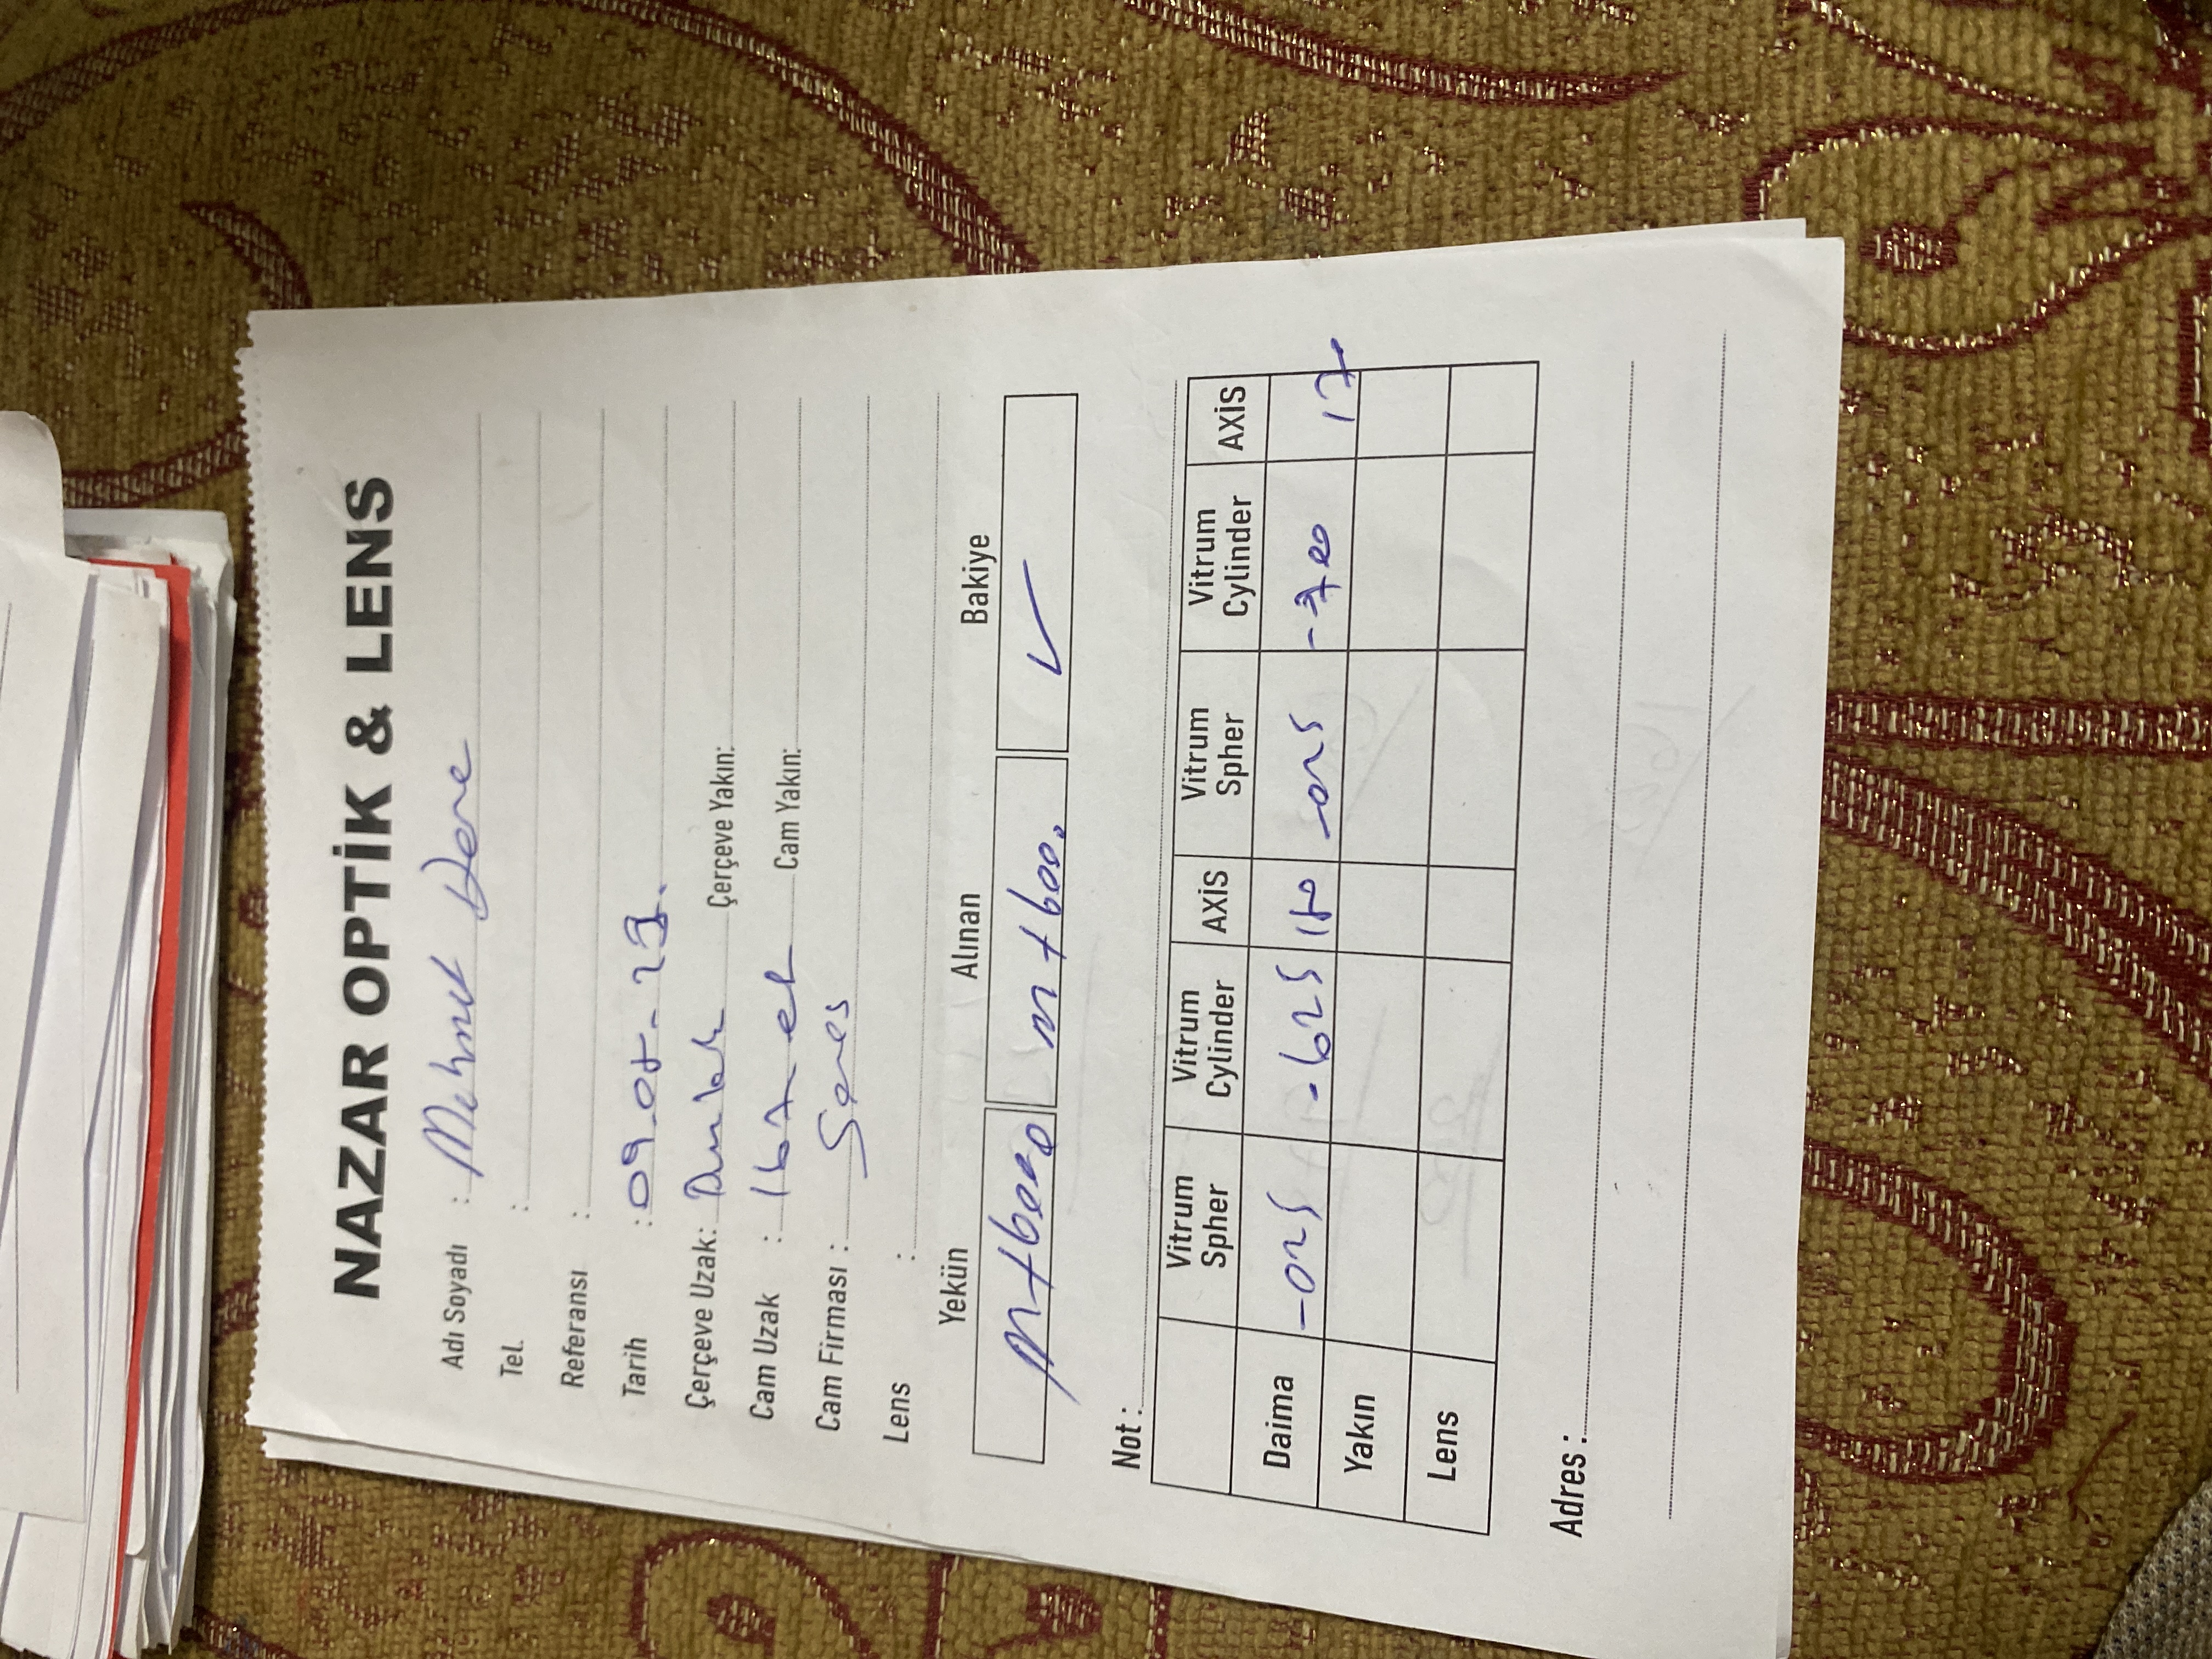 NAZAR OPTİK & LENS
Adı Soyadı : Mehmet Dere
Tel. :
Referansı :
Tarih :
Çerçeve Uzak: Çerçeve Yakın:
Cam Uzak : 167 Cam Yakın:
Cam Firması :
Lens :
Yekün Alınan Bakiye
m+6000 m+600. ✓
Not :
Vitrum Spher Vitrum Cylinder AXİS Vitrum Spher Vitrum Cylinder AXİS
Daima -025 -625 180 -025 -700 170
Yakın
Lens
Adres :